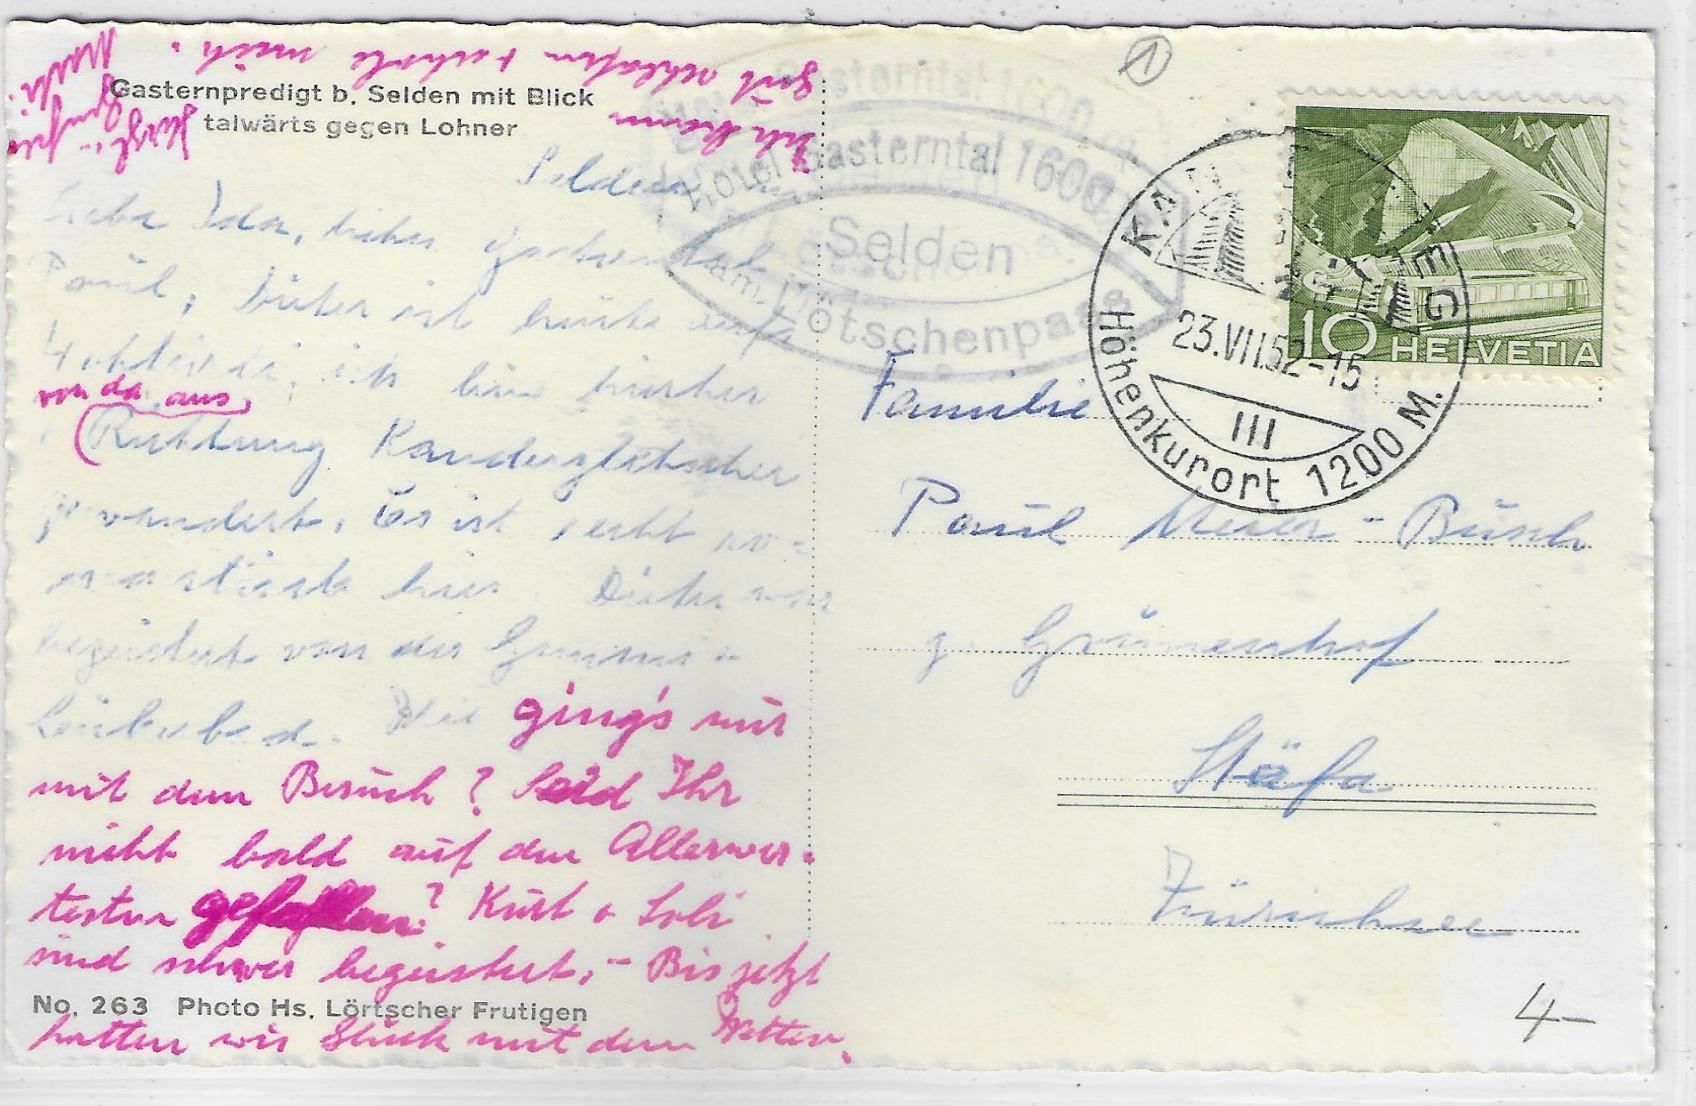 Gasternpredigt b. Selden mit Blick
talwärts gegen Lohner
Selden
Liebe Ida, lieber
Paul, Dieter ist heute aufs
ich bin bisher
von da aus
Richtung Kandergletscher
gewandert. Es ist recht ro-
mantisch hier. Dieter war
begeistert von der Gemmi -
Leukerbad. Wie ging's nur
mit dem Besuch? Seid Ihr
nicht bald auf den Allerwer-
testen gefallen? Kurt +
sind schwer begeistert. - Bis jetzt
hatten wir Glück mit dem Wetter.
Ich kann
gut schlafen + erhole mich.
Herzl.
No. 263 Photo Hs. Lörtscher Frutigen
Hotel Gasterntal 1600
Selden
am Lötschenpass
1
KANDERSTEG
23.VII.52-15
III
Höhenkurort 1200 M.
10 HELVETIA
Familie
Paul Meier - Büsch
z. Grünenhof
Stäfa
Zürichsee
4-